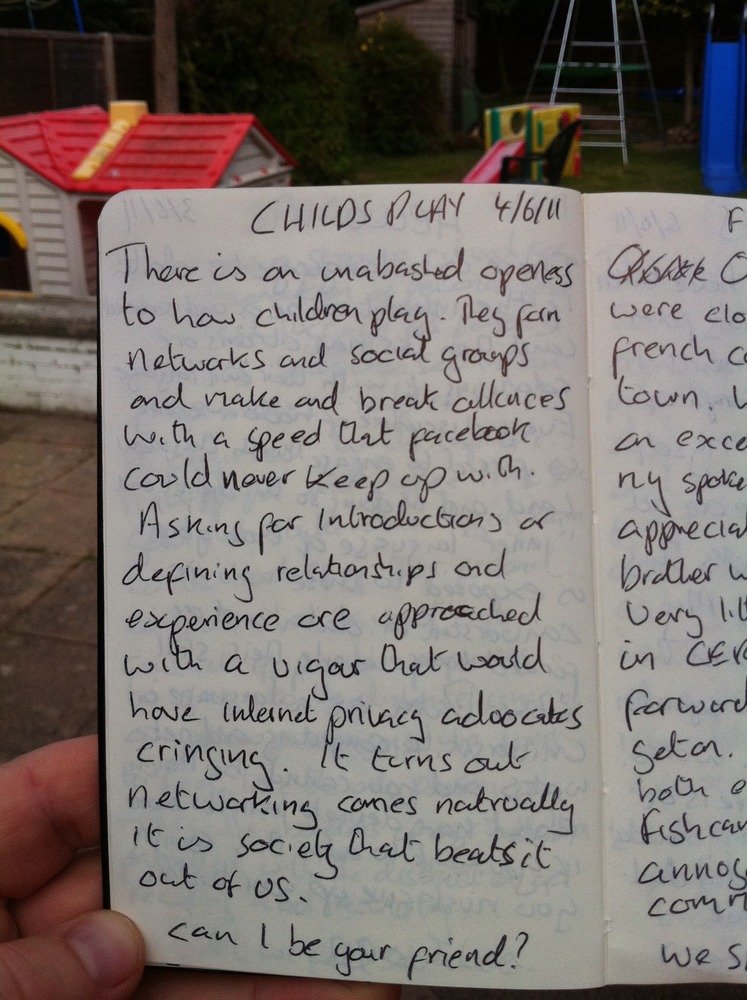 CHILDS PLAY 4/6/11
There is an unabashed openess
to how children play. They form
networks and social groups
and make and break allances
with a speed that facebook
could never keep up with.
Asking for introductions or
defining relationships and
experience are approached
with a vigour that would
have internet privacy advocates
cringing. It turns out
networking comes natrually
it is society that beats it
out of us.
can I be your friend?
F
were clo
french co
town. W
an exce
my spoke
appreciat
brother w
very litt
in CER
forward
get on.
both e
fishcar
annoy
comm
we s